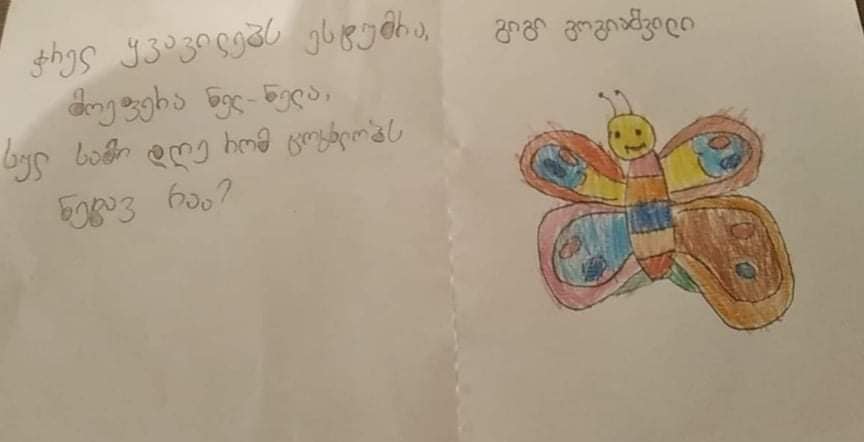 ჭრელ ყვავილებს ესტუმრა,
მოეფერა ნელ-ნელა,
სულ სამი დღე რომ ცოცხლობს
ნეტავ რაა?
გიგი გოგიაშვილი